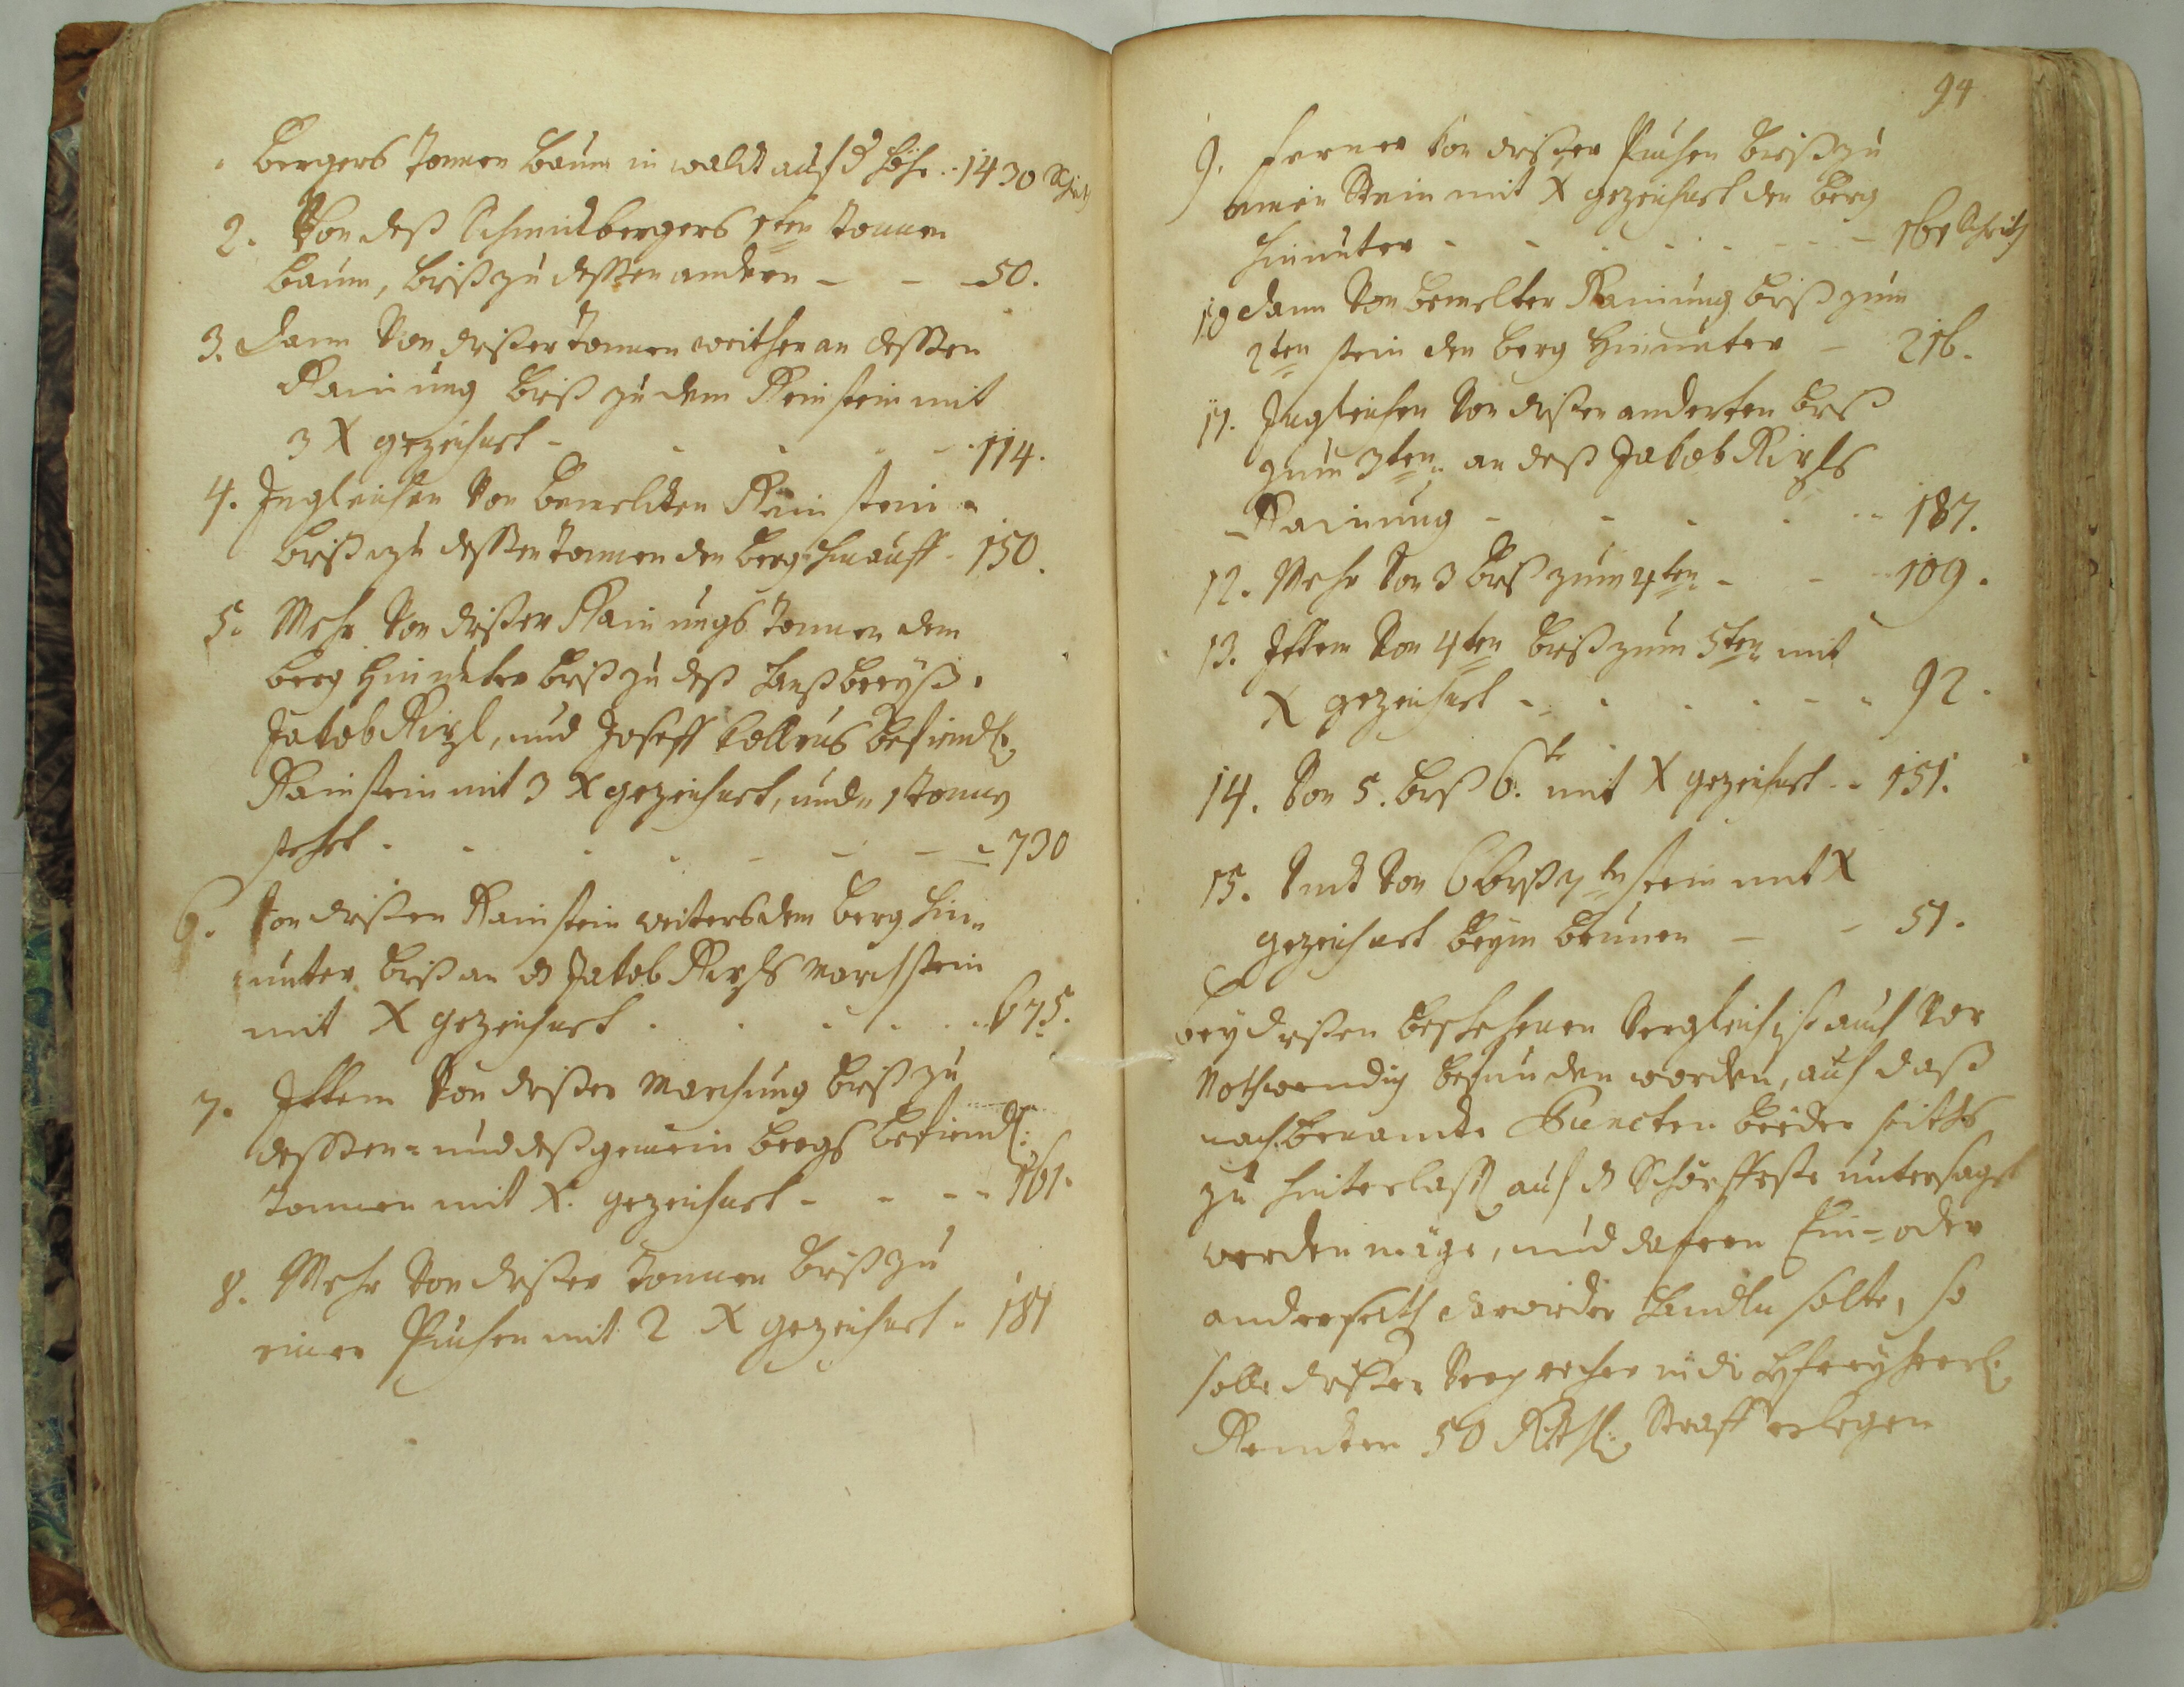 bergers Tonnen baum in waldt auf d Höhe .. 1430 Schrit
2. Von deß Schmidbergers 1ten Tonnen
baum, biß zu dessen andern - - - 50.
3. Dann Von dißer Tonnen weither an dessen
Rainung biß zu dem Rein stein mit
3 X gezeichnet - - - - - 114.
4. Ingleichen Von bemelten Rein stein
biß zu dessen Tonnen den berg hinauff - 150.
5. Mehr Von dißer Rainungs Tonnen dem
berg hinunter biß zu deß
Jakob Kirzl, und Joseff befindl:
Rainstein mit 3 X gezeichnet, und 1 Tonne
stehet . - - - - - - - 730
6. Von dißen Rainstein weiters dem berg hin=
unter biß an d Jakob Kirzls Marchstein
mit X gezeichnet . . . . . . 675.
7. Ittem Von dißer Marchung biß zu
dessen= und deß gemein bergs befindl:
Tonnen mit X. gezeichnet - - - - 161.
8. Mehr Von dißer Tonnen biß zu
einer Puechen mit 2 X gezeichnet - 181
94
9. Ferner Von dißer Puechen biß zu
einen Stein mit X gezeichnet den berg
hinunter - - - - - - - - 161 Schrit
10 Dann Von bemelter Rainung biß zum
2ten stein den berg hinunter - 216.
11. Ingleichen Von dißen anderten biß
zum 3ten an deß Jakob Kirzls
Rainung - - - - - - 187.
12. Mehr Von 3 biß zum 4ten - - - 109.
13. Ittem Von 4ten biß zum 5ten mit
X gezeichnet - - - - - - - 92.
14. Von 5. biß 6.te mit X gezeichnet - - 151.
15. Und Von 6 biß 7ten stein mit X
gezeichnet beym brunnen - - 51.
bey dißen beschehenen Vergleich ist auch Vor
Nothwendig befunden worden, auf daß
nachbenamte Puncten beeder seiths
zu hinterlass auf d Schörffeste untersagt
werden möge, und dafern Ein= oder
anderseith darwider handln solte, so
solle dißer Verprecher in die freyherrl:
Rendten 50 Rthl: Straff erlegen